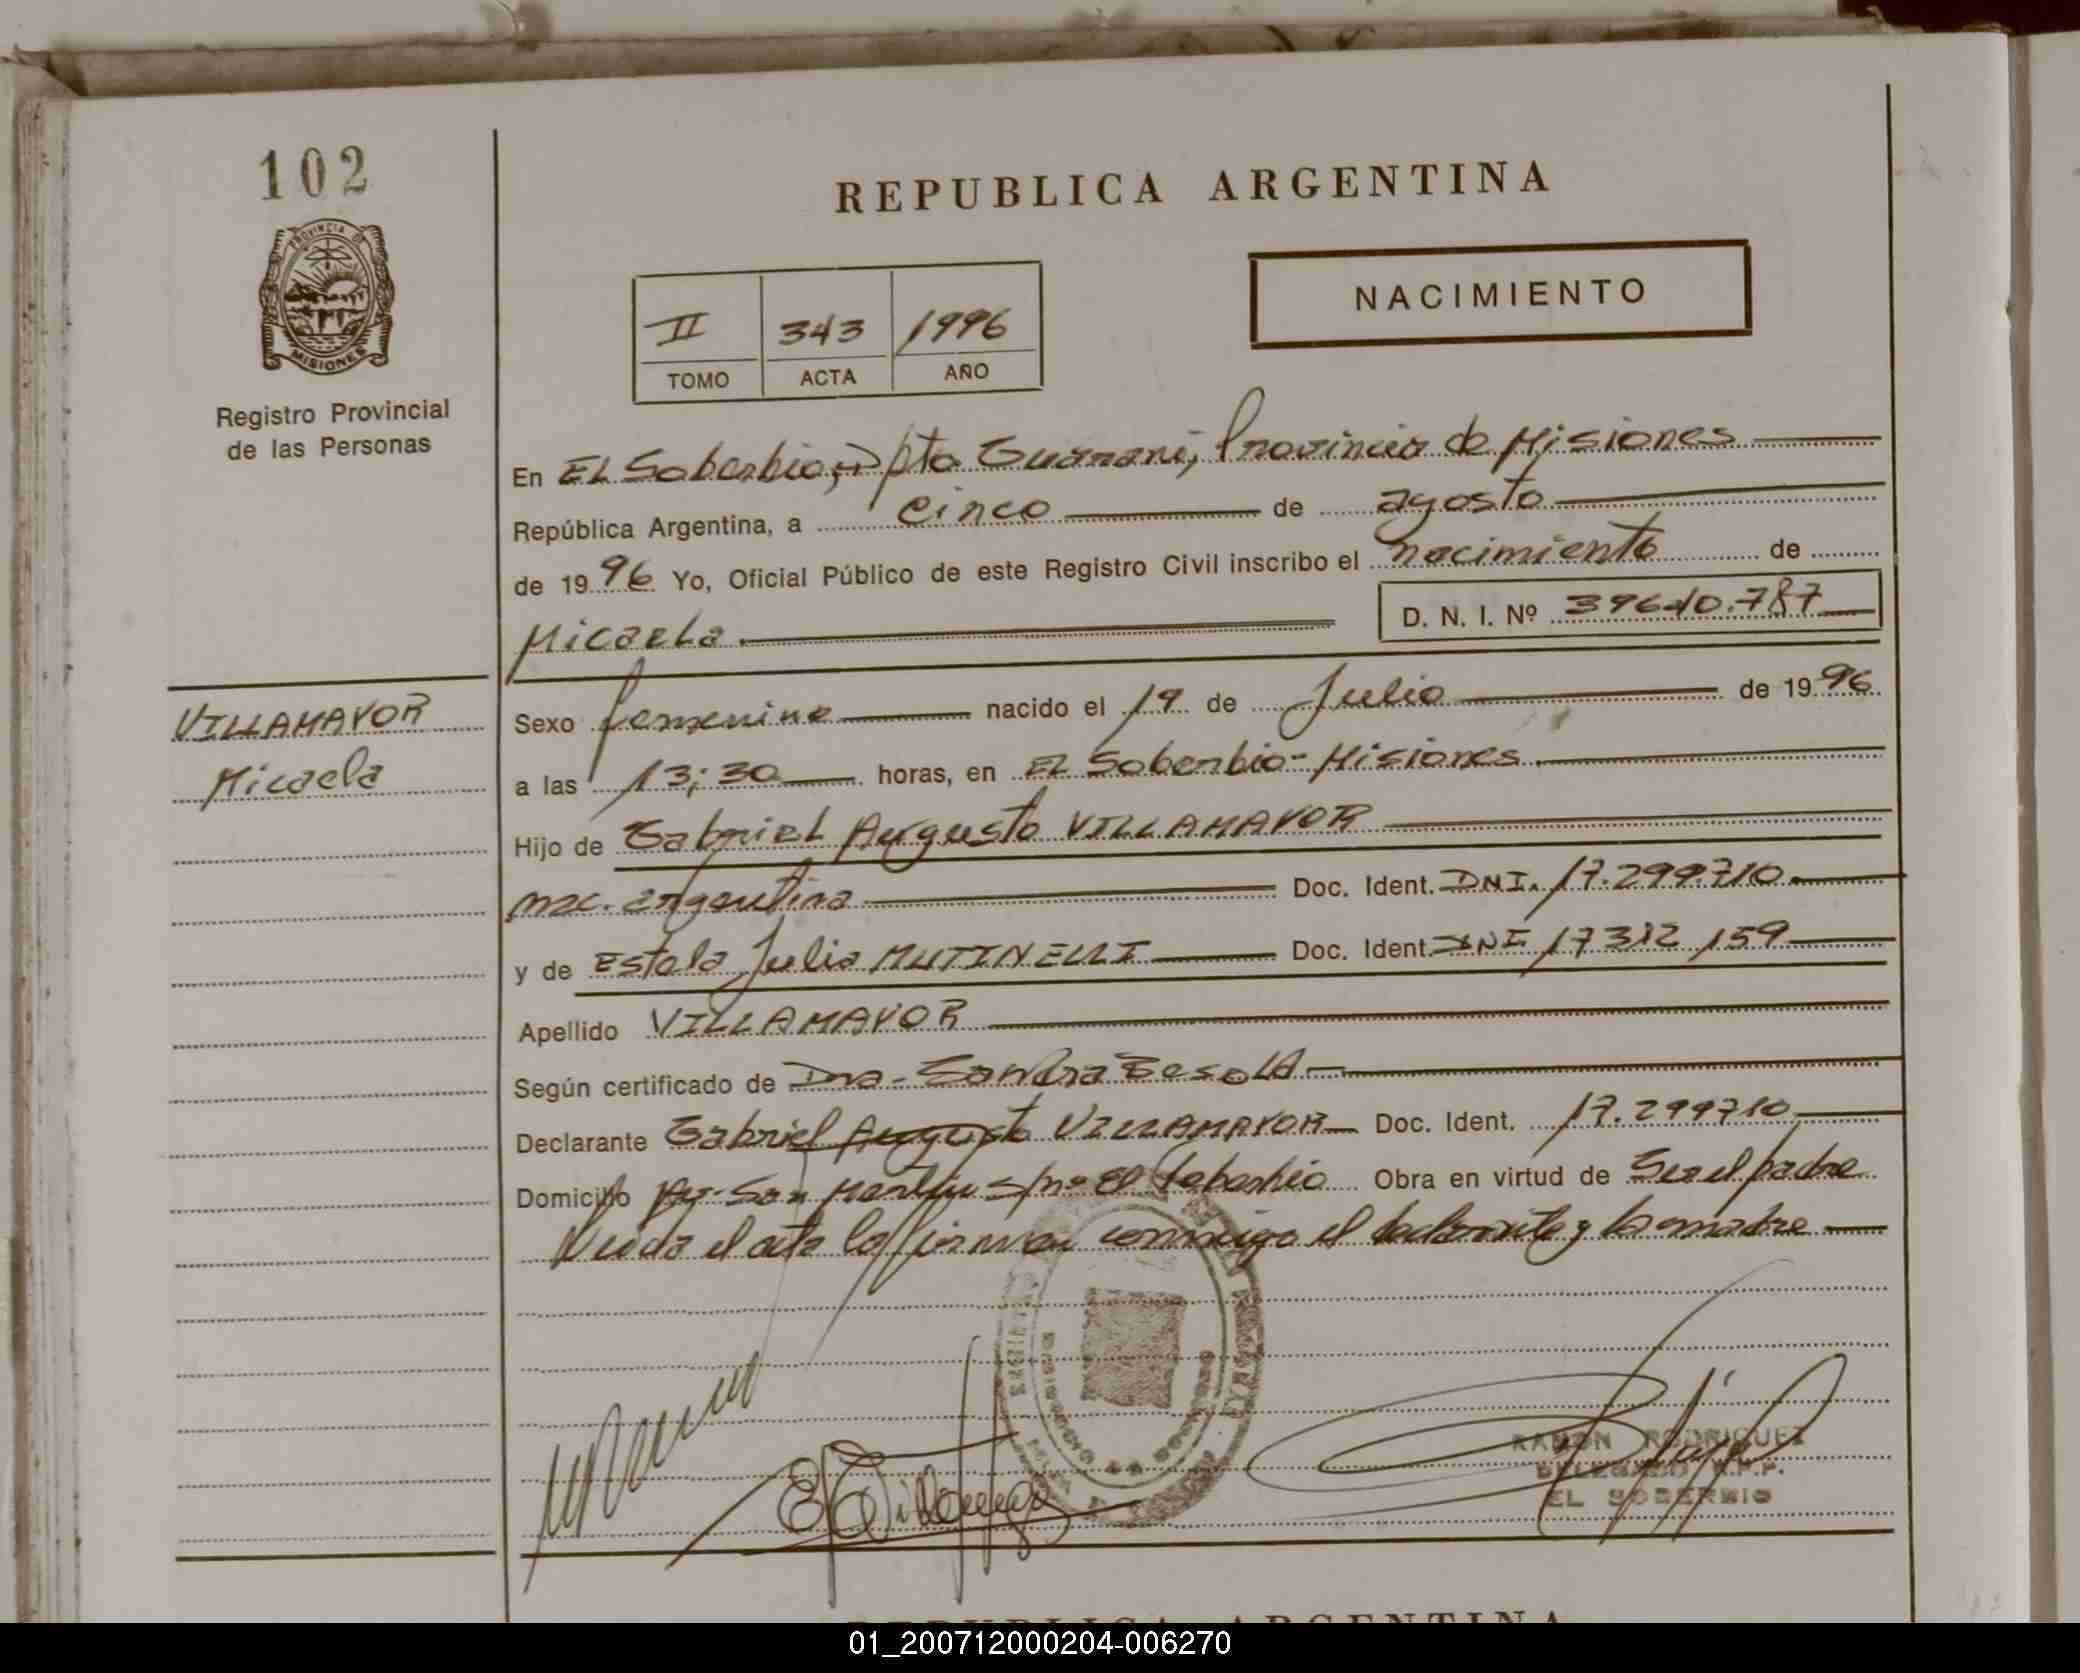 102
PROVINCIA DE
MISIONES
Registro Provincial
de las Personas
REPUBLICA ARGENTINA
II 343 1996
TOMO ACTA AÑO
NACIMIENTO
En EL Soberbio, Dpto Guarani, Provincia de Misiones
República Argentina, a cinco de agosto
de 1996 Yo, Oficial Público de este Registro Civil inscribo el nacimiento de
Micaela D. N. I. Nº
VILLAMAYOR
Micaela
Sexo femenino nacido el 19 de Julio de 1996
a las 13;30 horas, en EL Soberbio - Misiones
Hijo de Gabriel Augusto VILLAMAYOR
nac. argentina Doc. Ident. DNI. 17.299.710
y de Estela Julia MUTINELLI Doc. Ident. DNI 17312 159
Apellido VILLAMAYOR
Según certificado de Dra - Sandra
Declarante Gabriel Augusto VILLAMAYOR Doc. Ident. 17.299710
Domicilio San Martin s/nº El Soberbio Obra en virtud de Ser el padre
el acta la firman conmigo el declarante y la madre
RAMON RODRIGUEZ
DELEGADO R.P.P.
EL SOBERBIO
REPUBLICA ARGENTINA
01_200712000204-006270